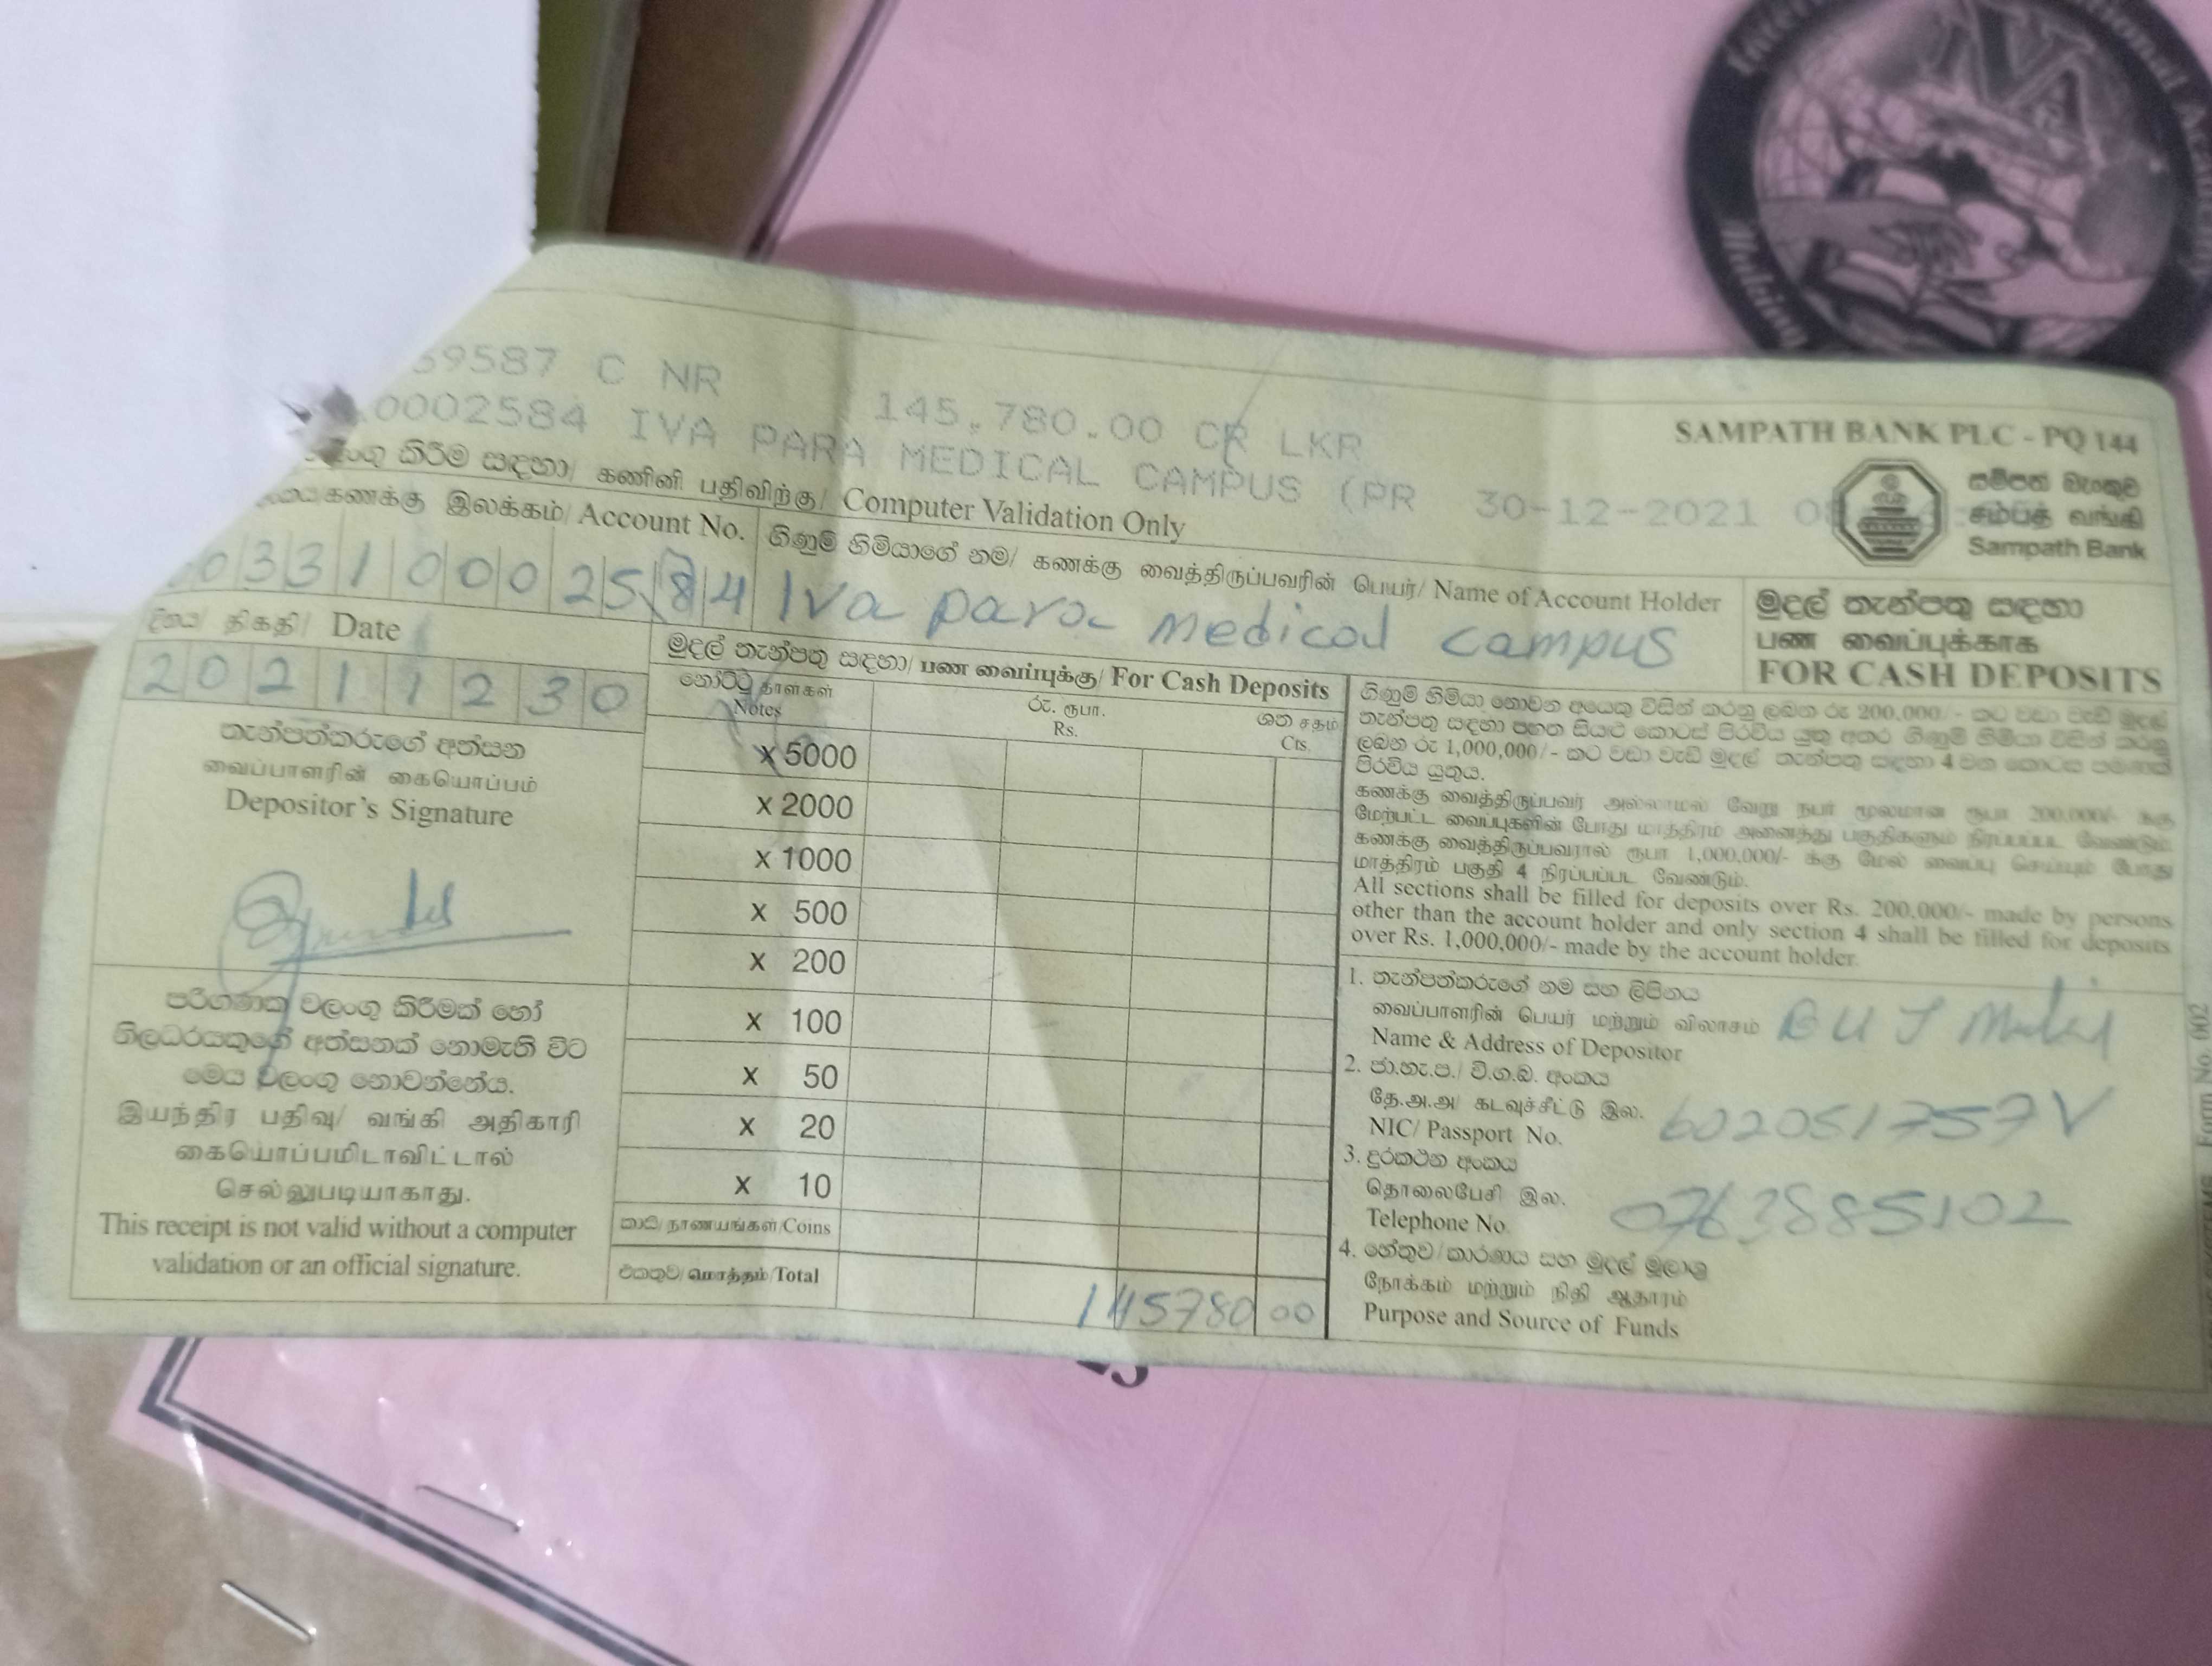 59587 C NR 145,780.00 CR LKR
0002584 IVA PARA MEDICAL CAMPUS (PR 30-12-2021
SAMPATH BANK PLC - PQ 144
සම්පත් බැංකුව
சம்பத் வங்கி
Sampath Bank
කිරීම සඳහා/ கணினி பதிவிற்கு/ Computer Validation Only
கணக்கு இலக்கம்/ Account No.
ගිණුම් හිමියාගේ නම/ கணக்கு வைத்திருப்பவரின் பெயர்/ Name of Account Holder
03310002584
Iva para Medical campus
මුදල් තැන්පතු සඳහා
பண வைப்புக்காக
FOR CASH DEPOSITS
දිනය/ திகதி/ Date
20211230
තැන්පත්කරුගේ අත්සන
வைப்பாளரின் கையொப்பம்
Depositor's Signature
පරිගණක වලංගු කිරීමක් හෝ
නිලධරයකුගේ අත්සනක් නොමැති විට
මෙය වලංගු නොවන්නේය.
இயந்திர பதிவு/ வங்கி அதிகாரி
கையொப்பமிடாவிட்டால்
செல்லுபடியாகாது.
This receipt is not valid without a computer
validation or an official signature.
මුදල් තැන්පතු සඳහා/ பண வைப்புக்கு/ For Cash Deposits
නෝට්ටු தாள்கள்
Notes
රු. ரூபா.
Rs.
ශත சதம்
Cts.
x 5000
x 2000
x 1000
x 500
x 200
x 100
x 50
x 20
x 10
කාසි/ நாணயங்கள்/Coins
එකතුව/ மொத்தம்/Total
145780 00
ගිණුම් හිමියා නොවන අයෙකු විසින් කරනු ලබන රු 200,000/- කට වඩා වැඩි මුදල්
තැන්පතු සඳහා පහත සියළු කොටස් පිරවිය යුතු අතර ගිණුම් හිමියා විසින් කරනු
ලබන රු 1,000,000/- කට වඩා වැඩි මුදල් තැන්පතු සඳහා 4 වන කොටස පමණක්
පිරවිය යුතුය.
கணக்கு வைத்திருப்பவர் அல்லாமல் வேறு நபர் மூலமான ரூபா 200,000/- க்கு
மேற்பட்ட வைப்புகளின் போது மாத்திரம் அனைத்து பகுதிகளும் நிரப்பப்பட வேண்டும்.
கணக்கு வைத்திருப்பவரால் ரூபா 1,000,000/- க்கு மேல் வைப்பு செய்யும் போது
மாத்திரம் பகுதி 4 நிரப்பப்பட வேண்டும்.
All sections shall be filled for deposits over Rs. 200,000/- made by persons
other than the account holder and only section 4 shall be filled for deposits
over Rs. 1,000,000/- made by the account holder.
1. තැන්පත්කරුගේ නම සහ ලිපිනය
வைப்பாளரின் பெயர் மற்றும் விலாசம்
Name & Address of Depositor
2. ජා.හැ.ප./ වි.ග.බ. අංකය
தே.அ.அ/ கடவுச்சீட்டு இல.
NIC/ Passport No.
602051757V
3. දුරකථන අංකය
தொலைபேசி இல.
Telephone No.
0763885102
4. හේතුව/කාරණය සහ මුදල් මූලාශ්‍ර
நோக்கம் மற்றும் நிதி ஆதாரம்
Purpose and Source of Funds
Form No. 002
Making